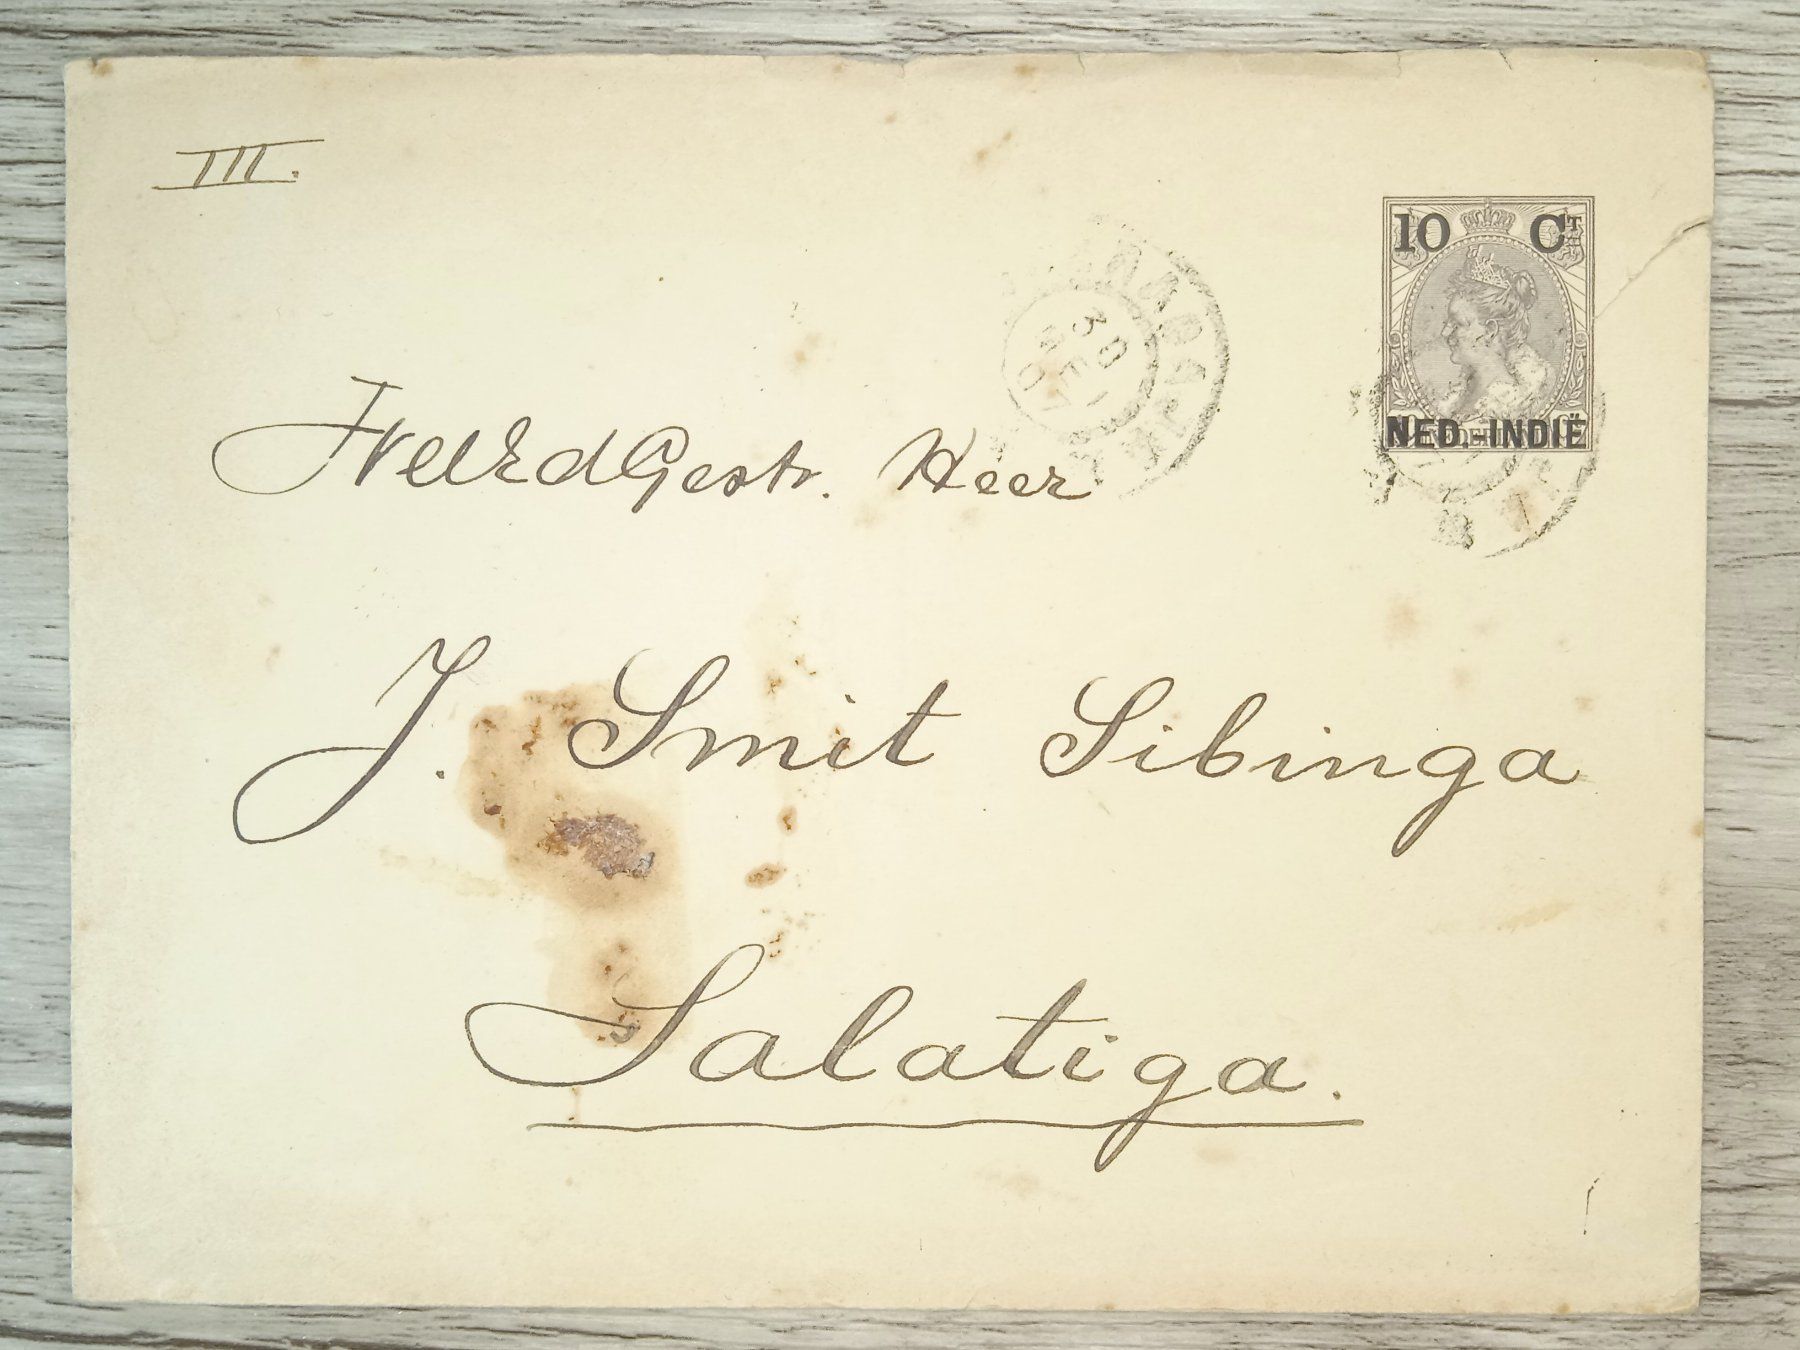 III.
10 Ct
NED.-INDIË
30
WelEdGestr. Heer
J. Smit Sibinga
Salatiga.